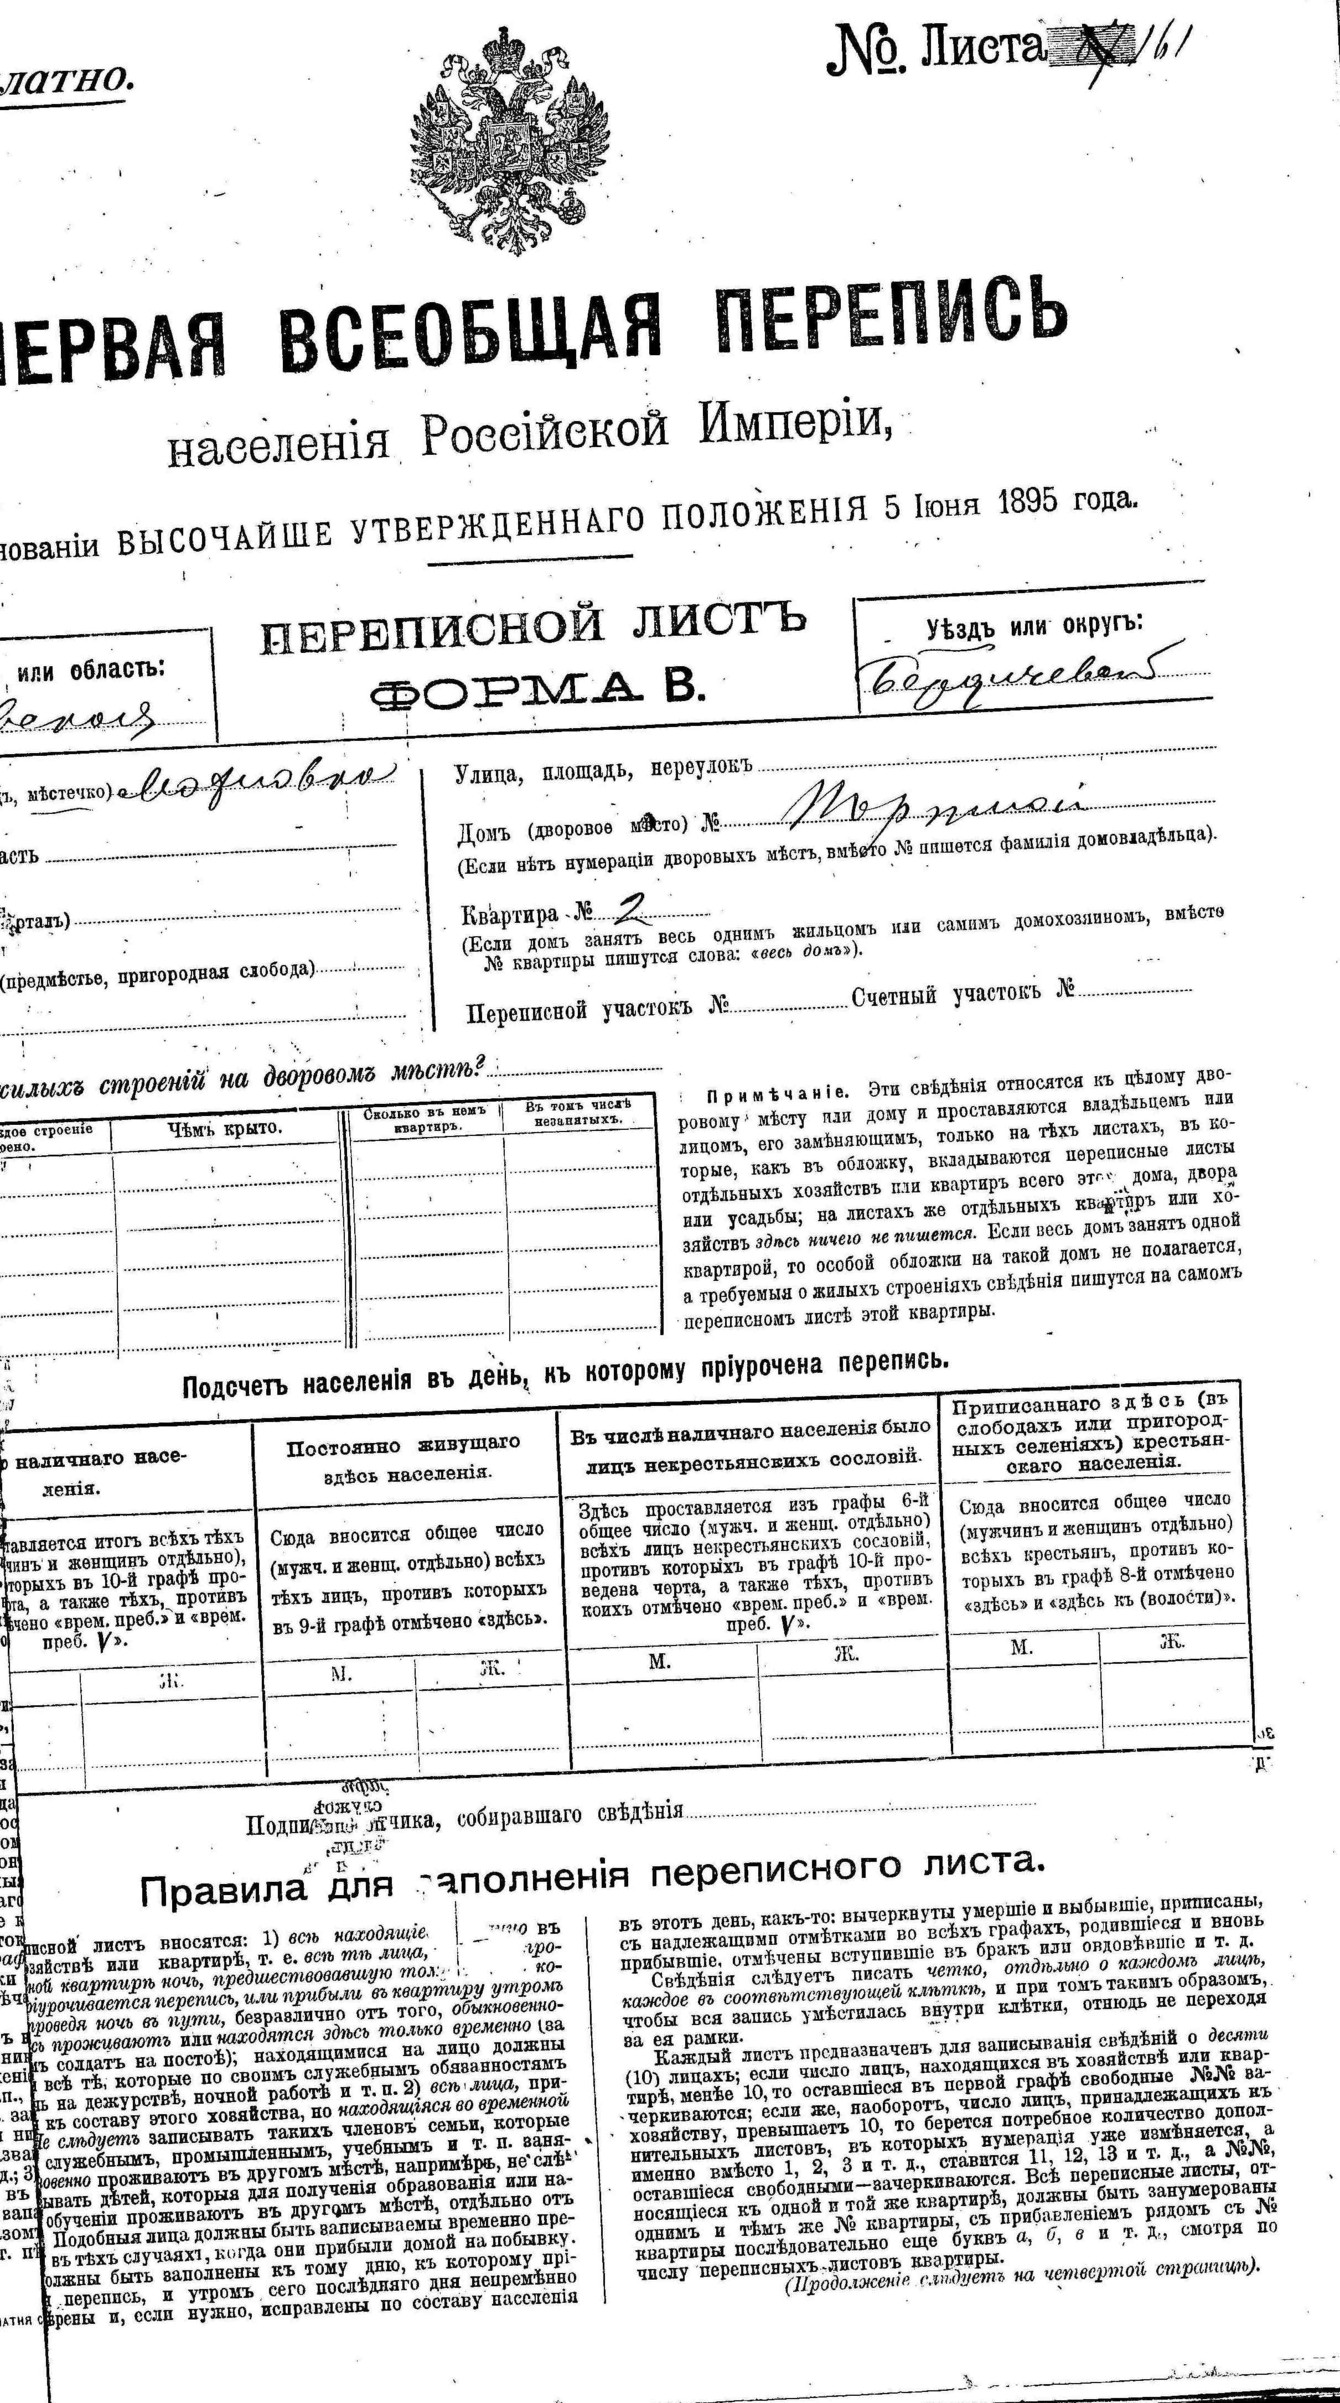 латно.
№. Листа 161
ПЕРВАЯ ВСЕОБЩАЯ ПЕРЕПИСЬ
населенія Россійской Имперіи,
нованіи ВЫСОЧАЙШЕ УТВЕРЖДЕННАГО ПОЛОЖЕНІЯ 5 Іюня 1895 года.
ПЕРЕПИСНОЙ ЛИСТЪ
ФОРМА В.
или область:
Уѣздъ или округъ:
Бердичевскій
ъ, мѣстечко)
асть
рталъ)
(предмѣстье, пригородная слобода)
Улица, площадь, переулокъ
Домъ (дворовое мѣсто) №
(Если нѣтъ нумераціи дворовыхъ мѣстъ, вмѣсто № пишется фамилія домовладѣльца).
Квартира № 2
(Если домъ занятъ весь однимъ жильцомъ или самимъ домохозяиномъ, вмѣсто
№ квартиры пишутся слова: «весь домъ»).
Переписной участокъ № Счетный участокъ №
жилыхъ строеній на дворовомъ мѣстѣ?
ждое строеніе
оено.
Чѣмъ крыто.
Сколько въ немъ
квартиръ.
Въ томъ числѣ
незанятыхъ.
Примѣчаніе. Эти свѣдѣнія относятся къ цѣлому дво-
ровому мѣсту или дому и проставляются владѣльцемъ или
лицомъ, его замѣняющимъ, только на тѣхъ листахъ, въ ко-
торые, какъ въ обложку, вкладываются переписные листы
отдѣльныхъ хозяйствъ или квартиръ всего этого дома, двора
или усадьбы; на листахъ же отдѣльныхъ квартиръ или хо-
зяйствъ здѣсь ничего не пишется. Если весь домъ занятъ одной
квартирой, то особой обложки на такой домъ не полагается,
а требуемыя о жилыхъ строеніяхъ свѣдѣнія пишутся на самомъ
переписномъ листѣ этой квартиры.
Подсчетъ населенія въ день, къ которому пріурочена перепись.
наличнаго насе-
ленія.
тавляется итогъ всѣхъ тѣхъ
чинъ и женщинъ отдѣльно),
торыхъ въ 10-й графѣ про-
та, а также тѣхъ, противъ
ѣчено «врем. преб.» и «врем.
преб. V».
Ж.
Постоянно живущаго
здѣсь населенія.
Сюда вносится общее число
(мужч. и женщ. отдѣльно) всѣхъ
тѣхъ лицъ, противъ которыхъ
въ 9-й графѣ отмѣчено «здѣсь».
М. Ж.
Въ числѣ наличнаго населенія было
лицъ некрестьянскихъ сословій.
Здѣсь проставляется изъ графы 6-й
общее число (мужч. и женщ. отдѣльно)
всѣхъ лицъ некрестьянскихъ сословій,
противъ которыхъ въ графѣ 10-й про-
ведена черта, а также тѣхъ, противъ
коихъ отмѣчено «врем. преб.» и «врем.
преб. V».
М. Ж.
Приписаннаго здѣсь (въ
слободахъ или пригород-
ныхъ селеніяхъ) крестьян-
скаго населенія.
Сюда вносится общее число
(мужчинъ и женщинъ отдѣльно)
всѣхъ крестьянъ, противъ ко-
торыхъ въ графѣ 8-й отмѣчено
«здѣсь» и «здѣсь къ (волости)».
М. Ж.
чика, собиравшаго свѣдѣнія
Правила для заполненія переписного листа.
писной листъ вносятся: 1) всѣ находящіе
зяйствѣ или квартирѣ, т. е. всѣ тѣ лица,
ной квартирѣ ночь, предшествовавшую
іурочивается перепись, или прибыли въ квартиру утромъ
проведя ночь въ пути, безразлично отъ того, обыкновенно-
сь проживаютъ или находятся здѣсь только временно (за
ъ солдатъ на постоѣ); находящимися на лицо должны
всѣ тѣ, которые по своимъ служебнымъ обязанностямъ
ь на дежурствѣ, ночной работѣ и т. п. 2) всѣ лица, при-
къ составу этого хозяйства, но находящіяся во временной
Не слѣдуетъ записывать такихъ членовъ семьи, которые
служебнымъ, промышленнымъ, учебнымъ и т. п. заня-
овенно проживаютъ въ другомъ мѣстѣ, напримѣръ, не слѣ-
ывать дѣтей, которыя для полученія образованія или на-
обученіи проживаютъ въ другомъ мѣстѣ, отдѣльно отъ
Подобныя лица должны быть записываемы временно пре-
въ тѣхъ случаяхъ, когда они прибыли домой на побывку.
олжны быть заполнены къ тому дню, къ которому прі-
перепись, и утромъ сего послѣдняго дня непремѣнно
ѣрены и, если нужно, исправлены по составу населенія
въ этотъ день, какъ-то: вычеркнуты умершіе и выбывшіе, приписаны,
съ надлежащими отмѣтками во всѣхъ графахъ, родившіеся и вновь
прибывшіе, отмѣчены вступившіе въ бракъ или овдовѣвшіе и т. д.
Свѣдѣнія слѣдуетъ писать четко, отдѣльно о каждомъ лицѣ,
каждое въ соотвѣтствующей клѣткѣ, и при томъ такимъ образомъ,
чтобы вся запись умѣстилась внутри клѣтки, отнюдь не переходя
за ея рамки.
Каждый листъ предназначенъ для записыванія свѣдѣній о десяти
(10) лицахъ; если число лицъ, находящихся въ хозяйствѣ или квар-
тирѣ, менѣе 10, то оставшіеся въ первой графѣ свободные №№ за-
черкиваются; если же, наоборотъ, число лицъ, принадлежащихъ къ
хозяйству, превышаетъ 10, то берется потребное количество допол-
нительныхъ листовъ, въ которыхъ нумерація уже измѣняется, а
именно вмѣсто 1, 2, 3 и т. д., ставится 11, 12, 13 и т. д., а №№,
оставшіеся свободными—зачеркиваются. Всѣ переписные листы, от-
носящіеся къ одной и той же квартирѣ, должны быть занумерованы
однимъ и тѣмъ же № квартиры, съ прибавленіемъ рядомъ съ №
квартиры послѣдовательно еще буквъ а, б, в и т. д., смотря по
числу переписныхъ листовъ квартиры.
(Продолженіе слѣдуетъ на четвертой страницѣ).